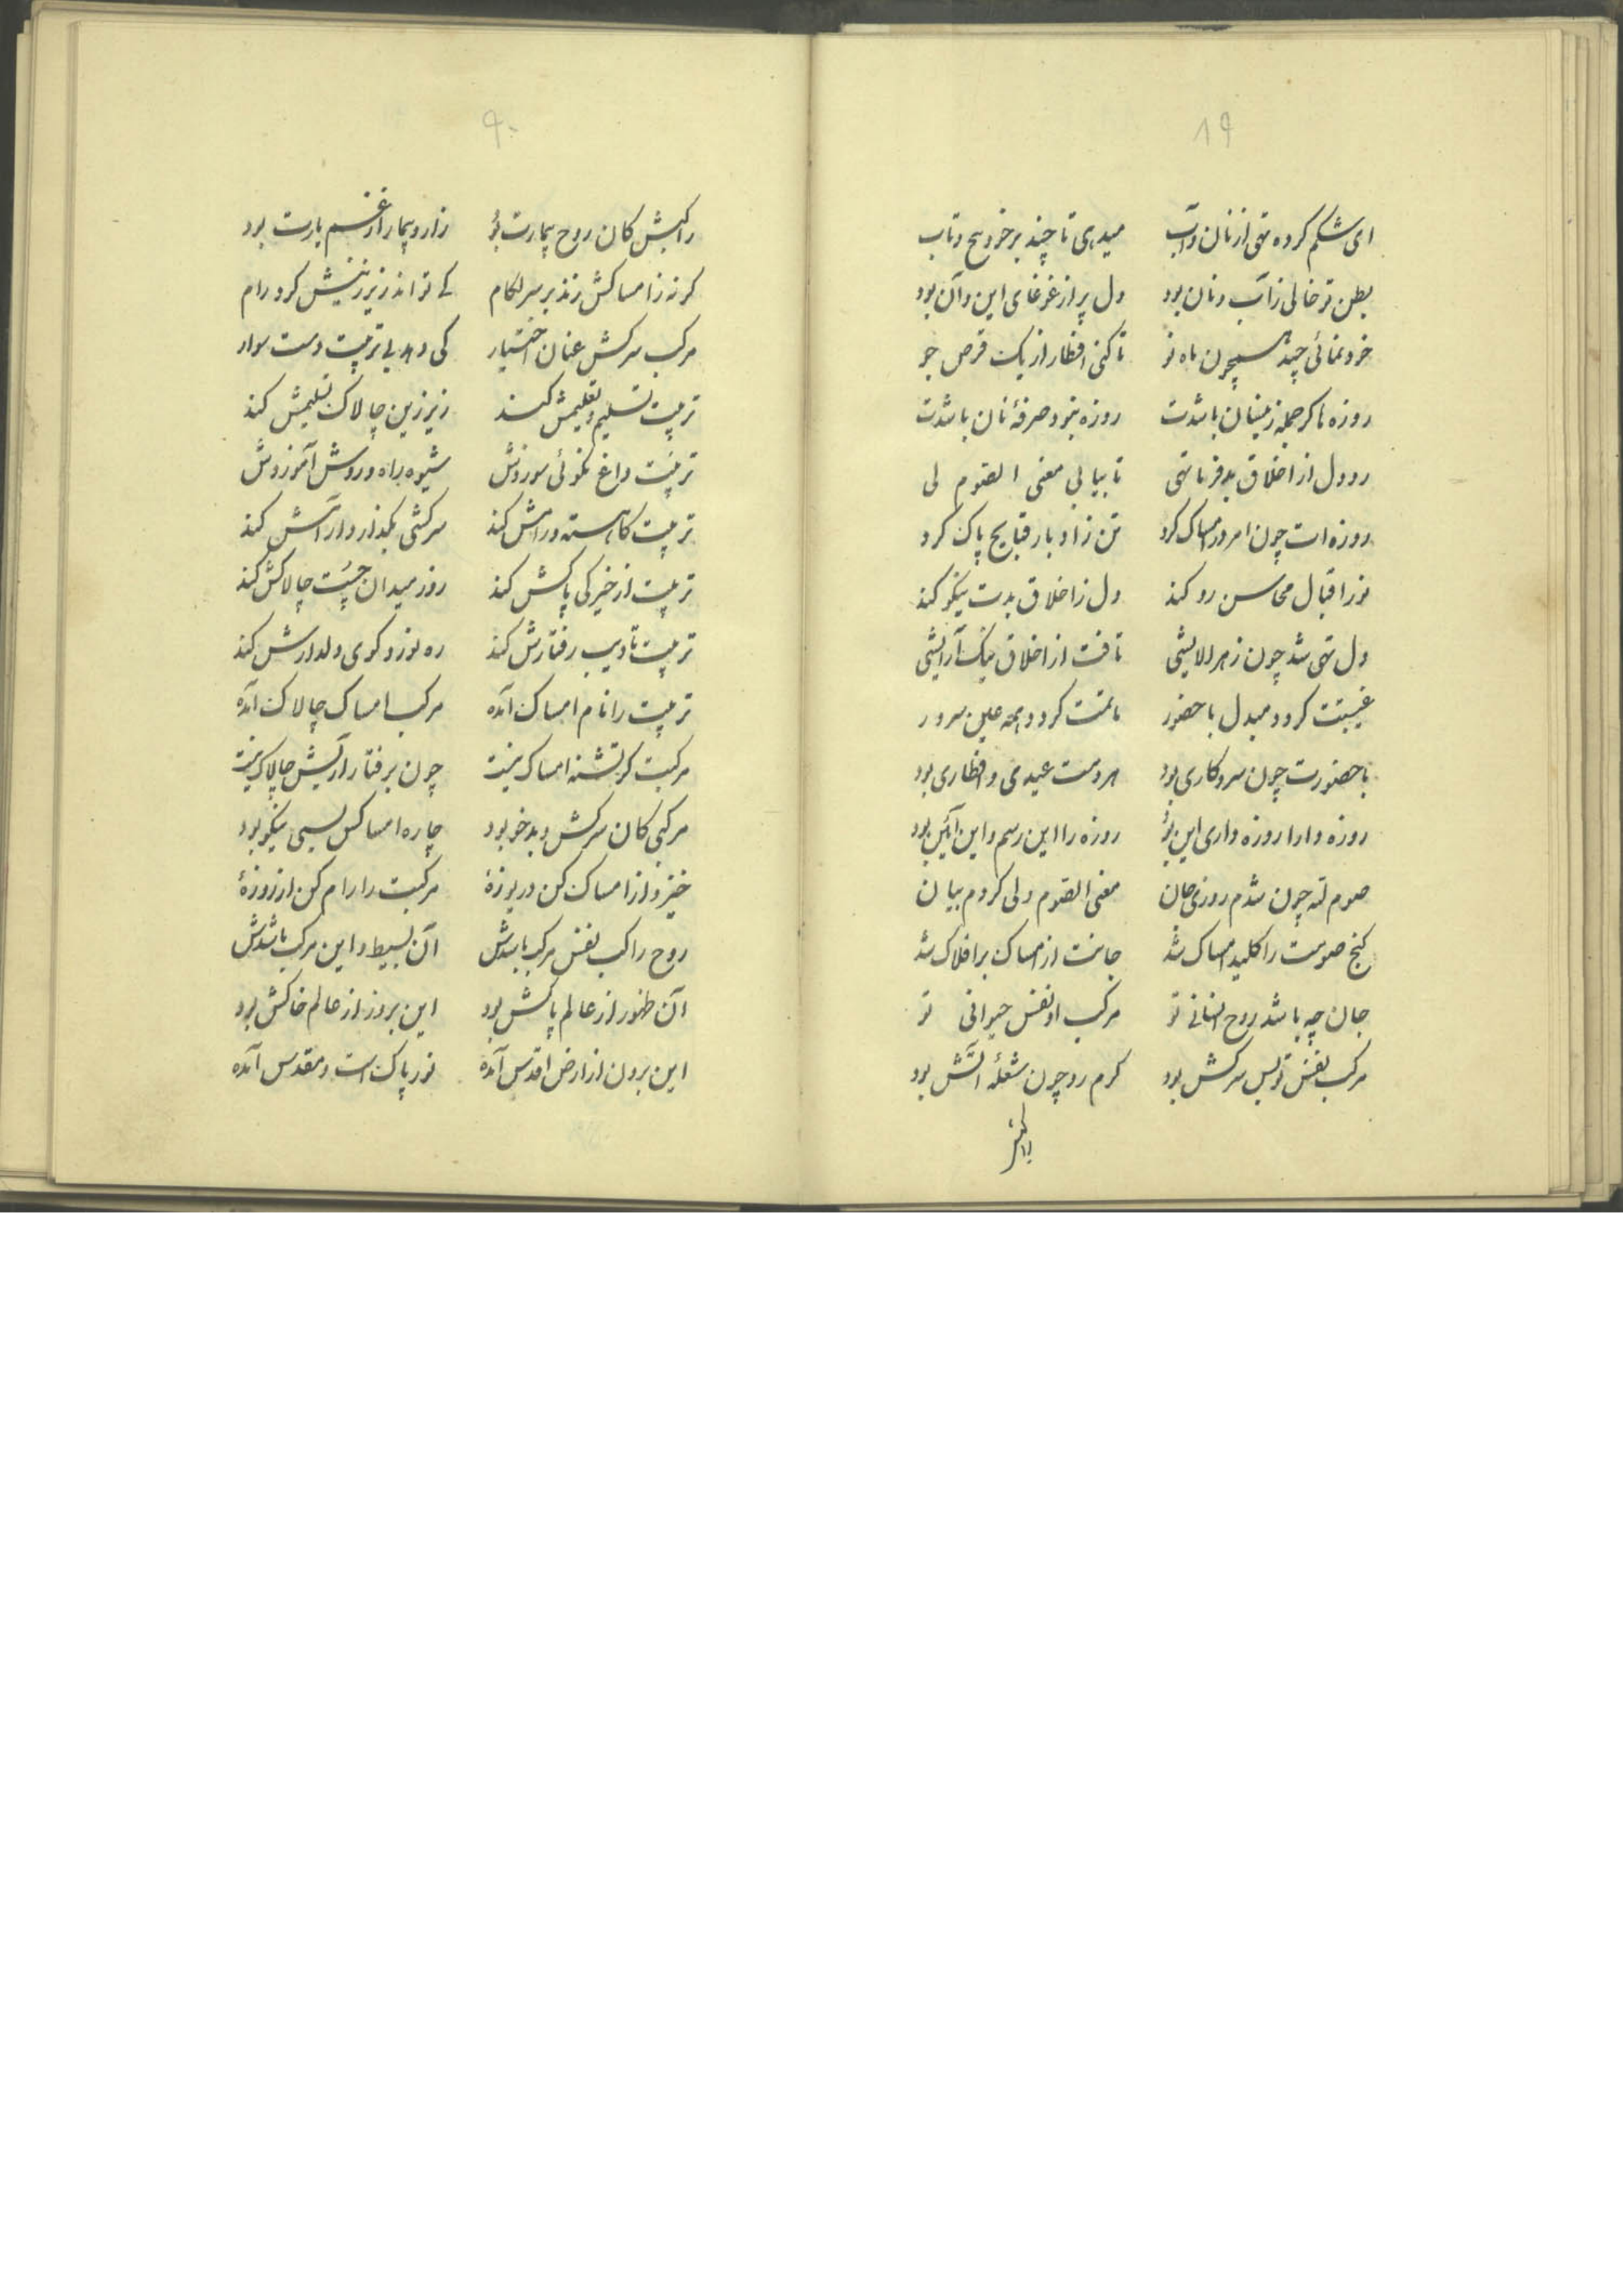 ۸۹
ای شکم کرده تهی از نان و آب میدهی تا چند بر خود پیچ و تاب
بطن تو خالی ز آب و نان بود دل پر از غوغای این و آن بود
خودنمائی چند همچون ماه نو تا کنی افطار از یک قرص جو
روزه ناکر جمله زینسان باشدت روزه نبود صرفهٔ نان باشدت
رو دل از اخلاق بد فرما تهی تا بیابی معنی الصوم لی
روزه ات چون امر در امساک کرد تن ز ادبار قبایح پاک کرد
نور اقبال محاسن رو کند دل ز اخلاق بدت نیکو کند
دل تهی شد چون ز هر الایشی تافت از اخلاق نیک آرایشی
غیبتت گردد مبدل با حضور ماتمت گردد همه عین سرور
با حضورت چون سر و کاری بود هر دمت عیدی و افطاری بود
روزه دارا روزه داری این بود روزه را این رسم و این آئین بود
صوم له چون شدم روزی جان معنی الصوم ولی کردم بیان
گنج صومت را کلید امساک شد جانت از امساک بر افلاک شد
جان چه باشد روح انسانی تو مرکب او نفس حیوانی تو
مرکب نفس تو بس سرکش بود گرم رو چون شعلهٔ آتش بود
راکبش
۹۰
راکبش کان روح بیمارت بود زار و بیمار از غم یارت بود
گرنه ز امساکش زند بر سر لگام کے تواند زیر زینش کرد رام
مرکب سرکش عنان اختیار کی دهد بی تربیت دست سوار
تربیت تسلیم و تعلیمش کند زیر زین چالاک تسلیمش کند
تربیت داغ نکوئی سوزدش شیوه راه و روش آموزدش
تربیت کاهسته و رامش کند سرکشی بگذارد آرامش کند
تربیت از خیرگی پاکش کند روز میدان چست چالاکش کند
تربیت تادیب رفتارش کند ره نورد کوی دلدارش کند
تربیت را نام امساک آمده مرکب امساک چالاک آمده
مرکبت گر تشنه امساک نیست چون برفتار آریش چالاک نیست
مرکبی کان سرکش و بدخو بود چاره امساکش بسی نیکو بود
خیز و از امساک کن دریوزهٔ مرکبت را رام کن از روزهٔ
روح راکب نفس مرکب باشدش آن بسیط و این مرکب باشدش
آن ظهور از عالم پاکش بود این بروز از عالم خاکش بود
این برون از ارض اقدس آمده نور پاک است و مقدس آمده